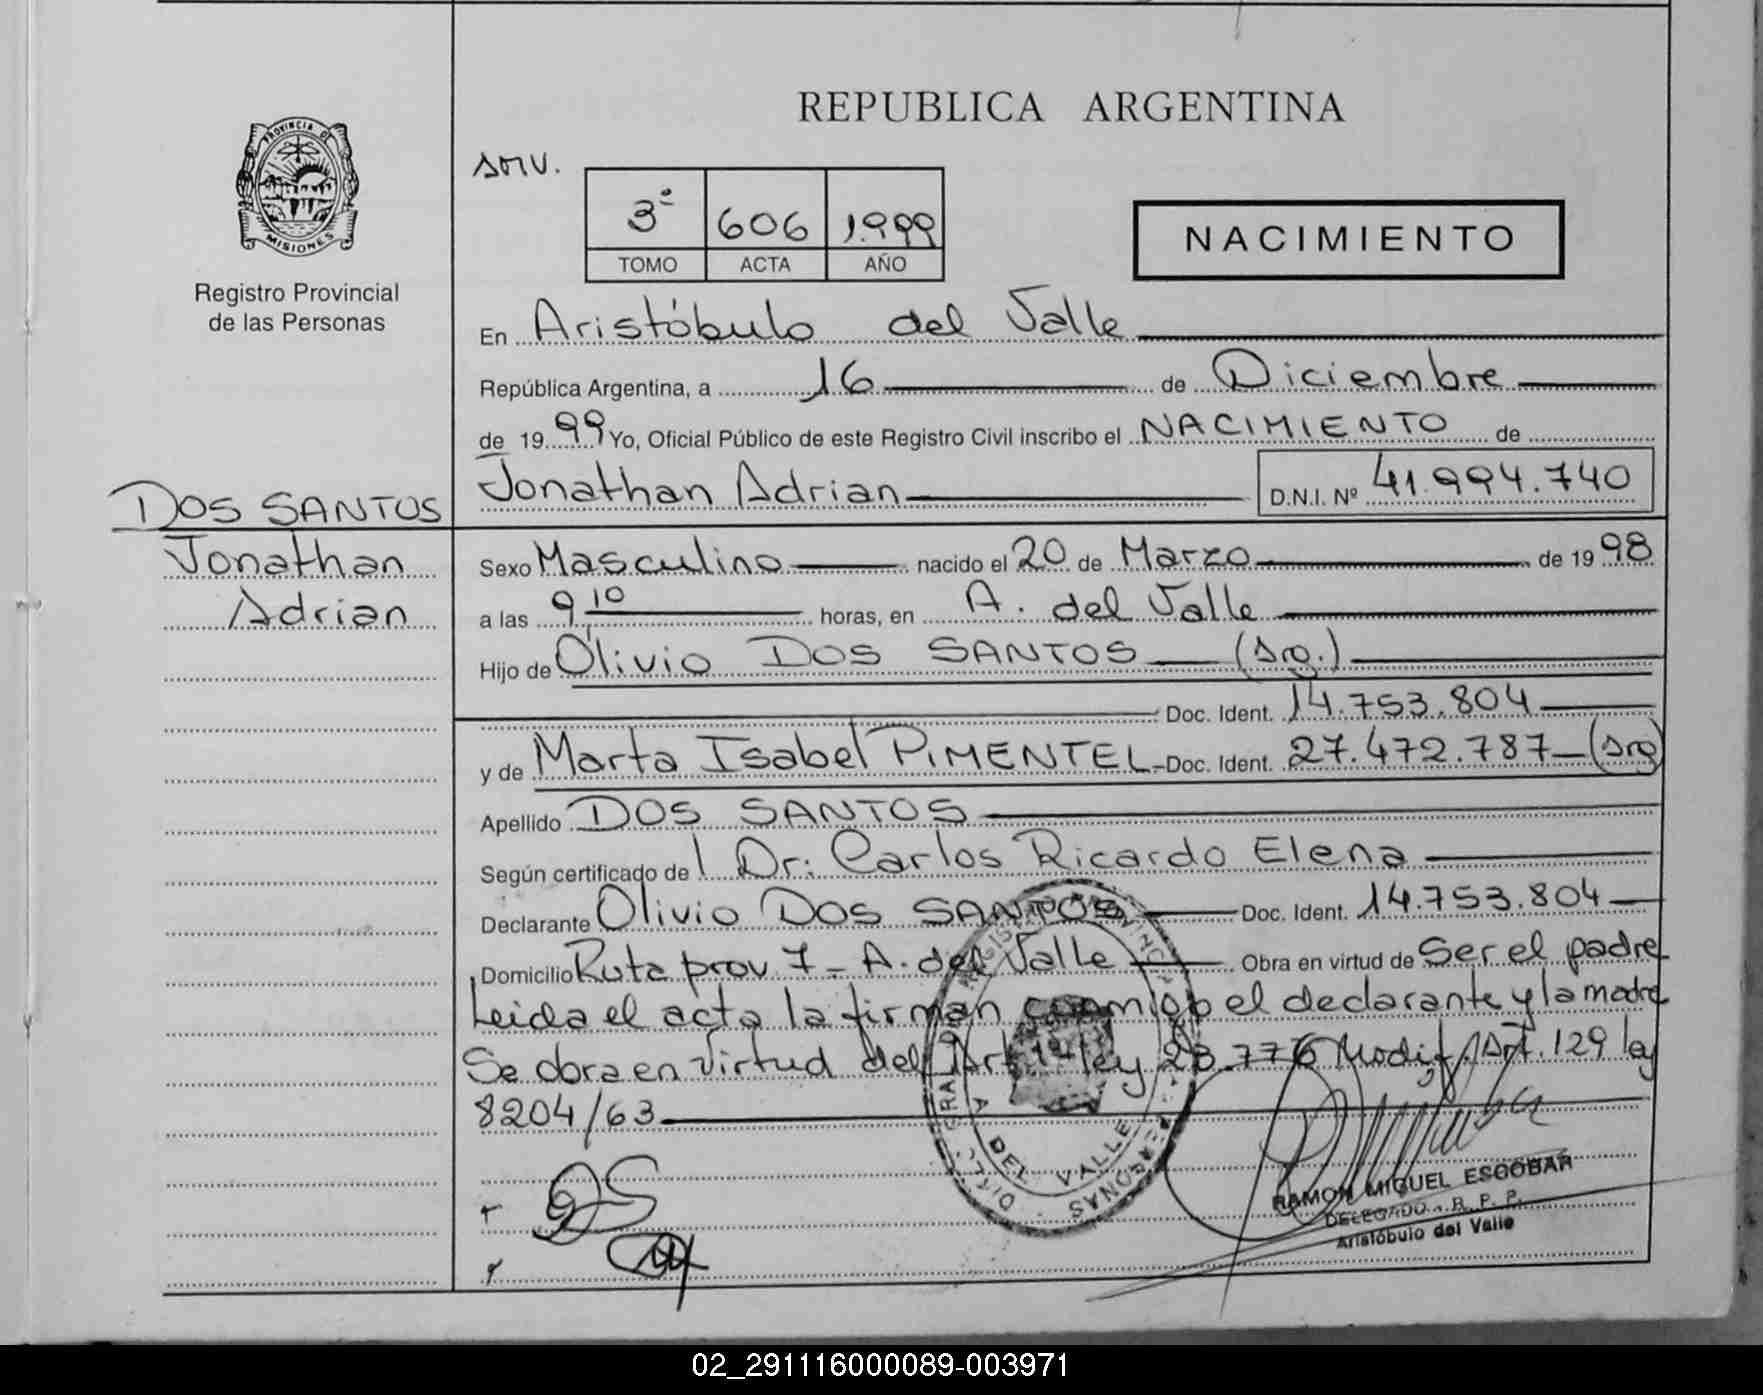 REPUBLICA ARGENTINA
PROVINCIA DE
MISIONES
Registro Provincial
de las Personas
3º 606 1.999
TOMO ACTA AÑO
NACIMIENTO
En Aristóbulo del Valle
República Argentina, a 16 de Diciembre
de 19 99 Yo, Oficial Público de este Registro Civil inscribo el NACIMIENTO de
Jonathan Adrian D.N.I. Nº 41.994.740
DOS SANTOS
Jonathan
Adrian
Sexo Masculino nacido el 20 de Marzo de 19 98
a las 9,10 horas, en A. del Valle
Hijo de Olivio DOS SANTOS (Arg.)
Doc. Ident. 14.753.804
y de Marta Isabel PIMENTEL - Doc. Ident. 27.472.787 - (Arg)
Apellido DOS SANTOS
Según certificado de l Dr: Carlos Ricardo Elena
Declarante Olivio DOS SANTOS Doc. Ident. 14.753.804
Domicilio Ruta prov 7 - A. del Valle Obra en virtud de Ser el padre
Leida el acta la firman conmigo el declarante y la madre
Se obra en virtud del Art 1º ley 23.776 Modif. Art. 129 ley
8204/63
DEL VALLE
RAMON MIGUEL ESCOBAR
DELEGADO R. P. P.
Aristóbulo del Valle
02_291116000089-003971